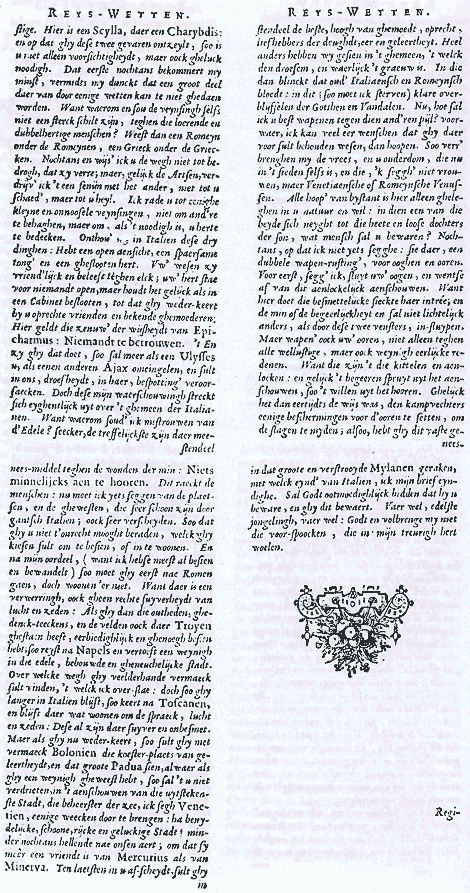 REYS-WETTEN.
stige. Hier is een Scylla, daer een Charybdis:
en op dat ghy dese twee gevaren ontzeylt, soo is
u niet alleen voorsichtigheyt, maer ook gheluck
noodigh. Dat eerste nochtans bekommert my
minst, vermids my dunckt dat een groot deel
daer van door eenige wetten kan te niet ghedaen
worden. Want waerom en sou de veynsingh selfs
niet een sterck schilt zijn, teghen die loerende en
dubbelhertige menschen? Weest dan een Romeyn
onder de Romeynen, een Grieck onder de Griec-
ken. Nochtans en wijs' ick u de wegh niet tot be-
drogh, dat zy verre; maer, gelijck de Artsen, ver-
drijv' ick 't een fenijn met het ander, niet tot u
schaed', maer tot u heyl. Ick rade u tot eenighe
kleyne en onnoosele veynsingen, niet om and're
te behaghen, maer om, als 't noodigh is, u herte
te bedecken. Onthou' in Italien dese dry
dinghen: Hebt een open aensicht, een spaersame
tong' en een ghesloten hert. Uw' wesen zy
vriend'lijck en beleeft teghen elck; uw' hert stae
voor niemandt open, maer houdt het gelijck als in
een Cabinet beslooten, tot dat ghy weder-keert
by u oprechte vrienden en bekende ghemoederen;
Hier geldt die zenuw' der wijsheydt van Epi-
charmus: Niemandt te betrouwen. 't En
zy ghy dat doet, soo sal meer als een Ulysses
u, als eenen anderen Ajax omcingelen, en sult
in ons, droefheydt, in haer, bespotting' veroor-
saecken. Doch dese mijn waerschouwingh streckt
sich eyghentlijck uyt over 't ghemeen der Italia-
nen. Want waerom soud' u mistrouwen van
d'Edele? seecker, de treffelijckste zijn daer mee-
stendeel
REYS-WETTEN.
stendeel de beste, hoogh van ghemoedt, oprecht,
liefhebbers der deughdt, eer en geleertheyt. Heel
anders hebben wy gesien in 't ghemeen, 't welck
den dwasen, en waerlijck 't graeuw is. In die
dan blinckt dat oud' Italiaensch en Romeynsch
bloedt: in dit (soo moet ick sterven) klare over-
blijfselen der Gotthen en Vandalen. Nu, hoe sal
ick u best wapenen tegen dien and'ren pijl? voor-
waer, ick kan veel eer wenschen dat ghy daer
voor sult behouden wesen, dan hoopen. Soo verr'
brenghen my de vrees, en u ouderdom, die nu
in 't sieden self s is, en die, 'k segh' niet vrou-
wen, maer Venetiaensche of Romeynsche Venus-
sen. Alle hoop' van bystant is hier alleen ghele-
ghen in u natuur en wil: in dien een van die
beyde sich neyght tot die heete en loose dochters
der son, wat mensch sal u bewaren? Noch-
tans, op dat ick niet yets segghe: sie daer, een
dubbele wapen-rusting', voor ooghen en ooren.
Voor eerst, segg' ick, sluyt uw' oogen, en wentse
af van die aenlockelijck aenschouwen. Want
hier doet die besmettelijcke sieckte haer intrée; en
de min of de begeerlijckheyt en sal niet lichtelijck
anders, als door dese twee vensters, in-sluypen.
Maer wapen' oock uw' ooren, niet alleen teghen
alle wellustige, maer oock weynigh eerlijcke re-
denen. Want die zijn 't die kittelen en aen-
locken: en gelijck 't begeeren spruyt uyt het aen-
schouwen, soo 't willen uyt het hooren. Ghelijck
het dan eertijds de wijs was, den kampvechters
eenige beschermingen voor d'ooren te setten, om
de slagen te myden; alsoo, hebt ghy dit vaste ge-
nees-
nees-middel teghen de wonden der min: Niets
minnelijcks aen te hooren. Dit raeckt de
menschen: nu moet ick yets seggen van de plaet-
sen, en de ghewesten, die seer schoon zijn door
gantsch Italien; oock seer verscheyden. Soo dat
ghy u niet t'onrecht mooght beraden, welck ghy
kiesen sult om te besien, of in te woonen. En
na mijn oordeel, (want ick hebse meest al besien
en bewandelt) soo moet ghy eerst nae Romen
gaen, doch woonen 'er niet. Want daer is een
verwerringh, ook gheen rechte suyverheydt van
lucht en zeden: Als ghy dan die outheden, ghe-
denck-teeckens, en de velden oock daer Troyen
ghestaen heeft, eerbiedighlijck en ghenoegh besien
hebt; soo reyst na Napels en vertoeft een weynigh
in die edele, bebouwde en gheneuchelijcke stadt.
Over welcke wegh ghy veelderhande vermaeck
sult vinden, 't welck ick over-slae: doch soo ghy
langer in Italien blijft, soo keert na Toscanen,
en blijft daer wat woonen om de spraeck, lucht
en zeden: Dese al zijn daer suyver en onbesmet.
Maer als ghy nu weder-keert, soo sult ghy met
vermaeck Bolonien die koester-plaets van ge-
leertheydt, en dat groote Padua sien, alwaer als
ghy een weynigh gheweest hebt, soo sal 't u niet
verdrieten, in 't aenschouwen van die uytsteken-
ste Stadt, die beheerster der zee, ick segh Vene-
tien, eenige weecken door te brengen: ha beny-
delijcke, schoone, rijcke en geluckige Stadt! min-
der nochtans hellende nae onsen aert; om dat sy
meer een vriendt is van Mercurius als van
Minerva. Ten laetsten in u af-scheydt sult ghy
in
in dat groote en verstrooyde Mylanen geraken,
met welck eynd' van Italien, ick mijn brief eyn-
dighe. Sal Godt ootmoedighlijck bidden dat hy u
beware, en ghy dit bewaert. Vaer wel, edelste
jongelingh, vaer wel: Godt en volbrenge my met
die voor-spoocken, die in mijn treurigh hert
woelen.
Regi-